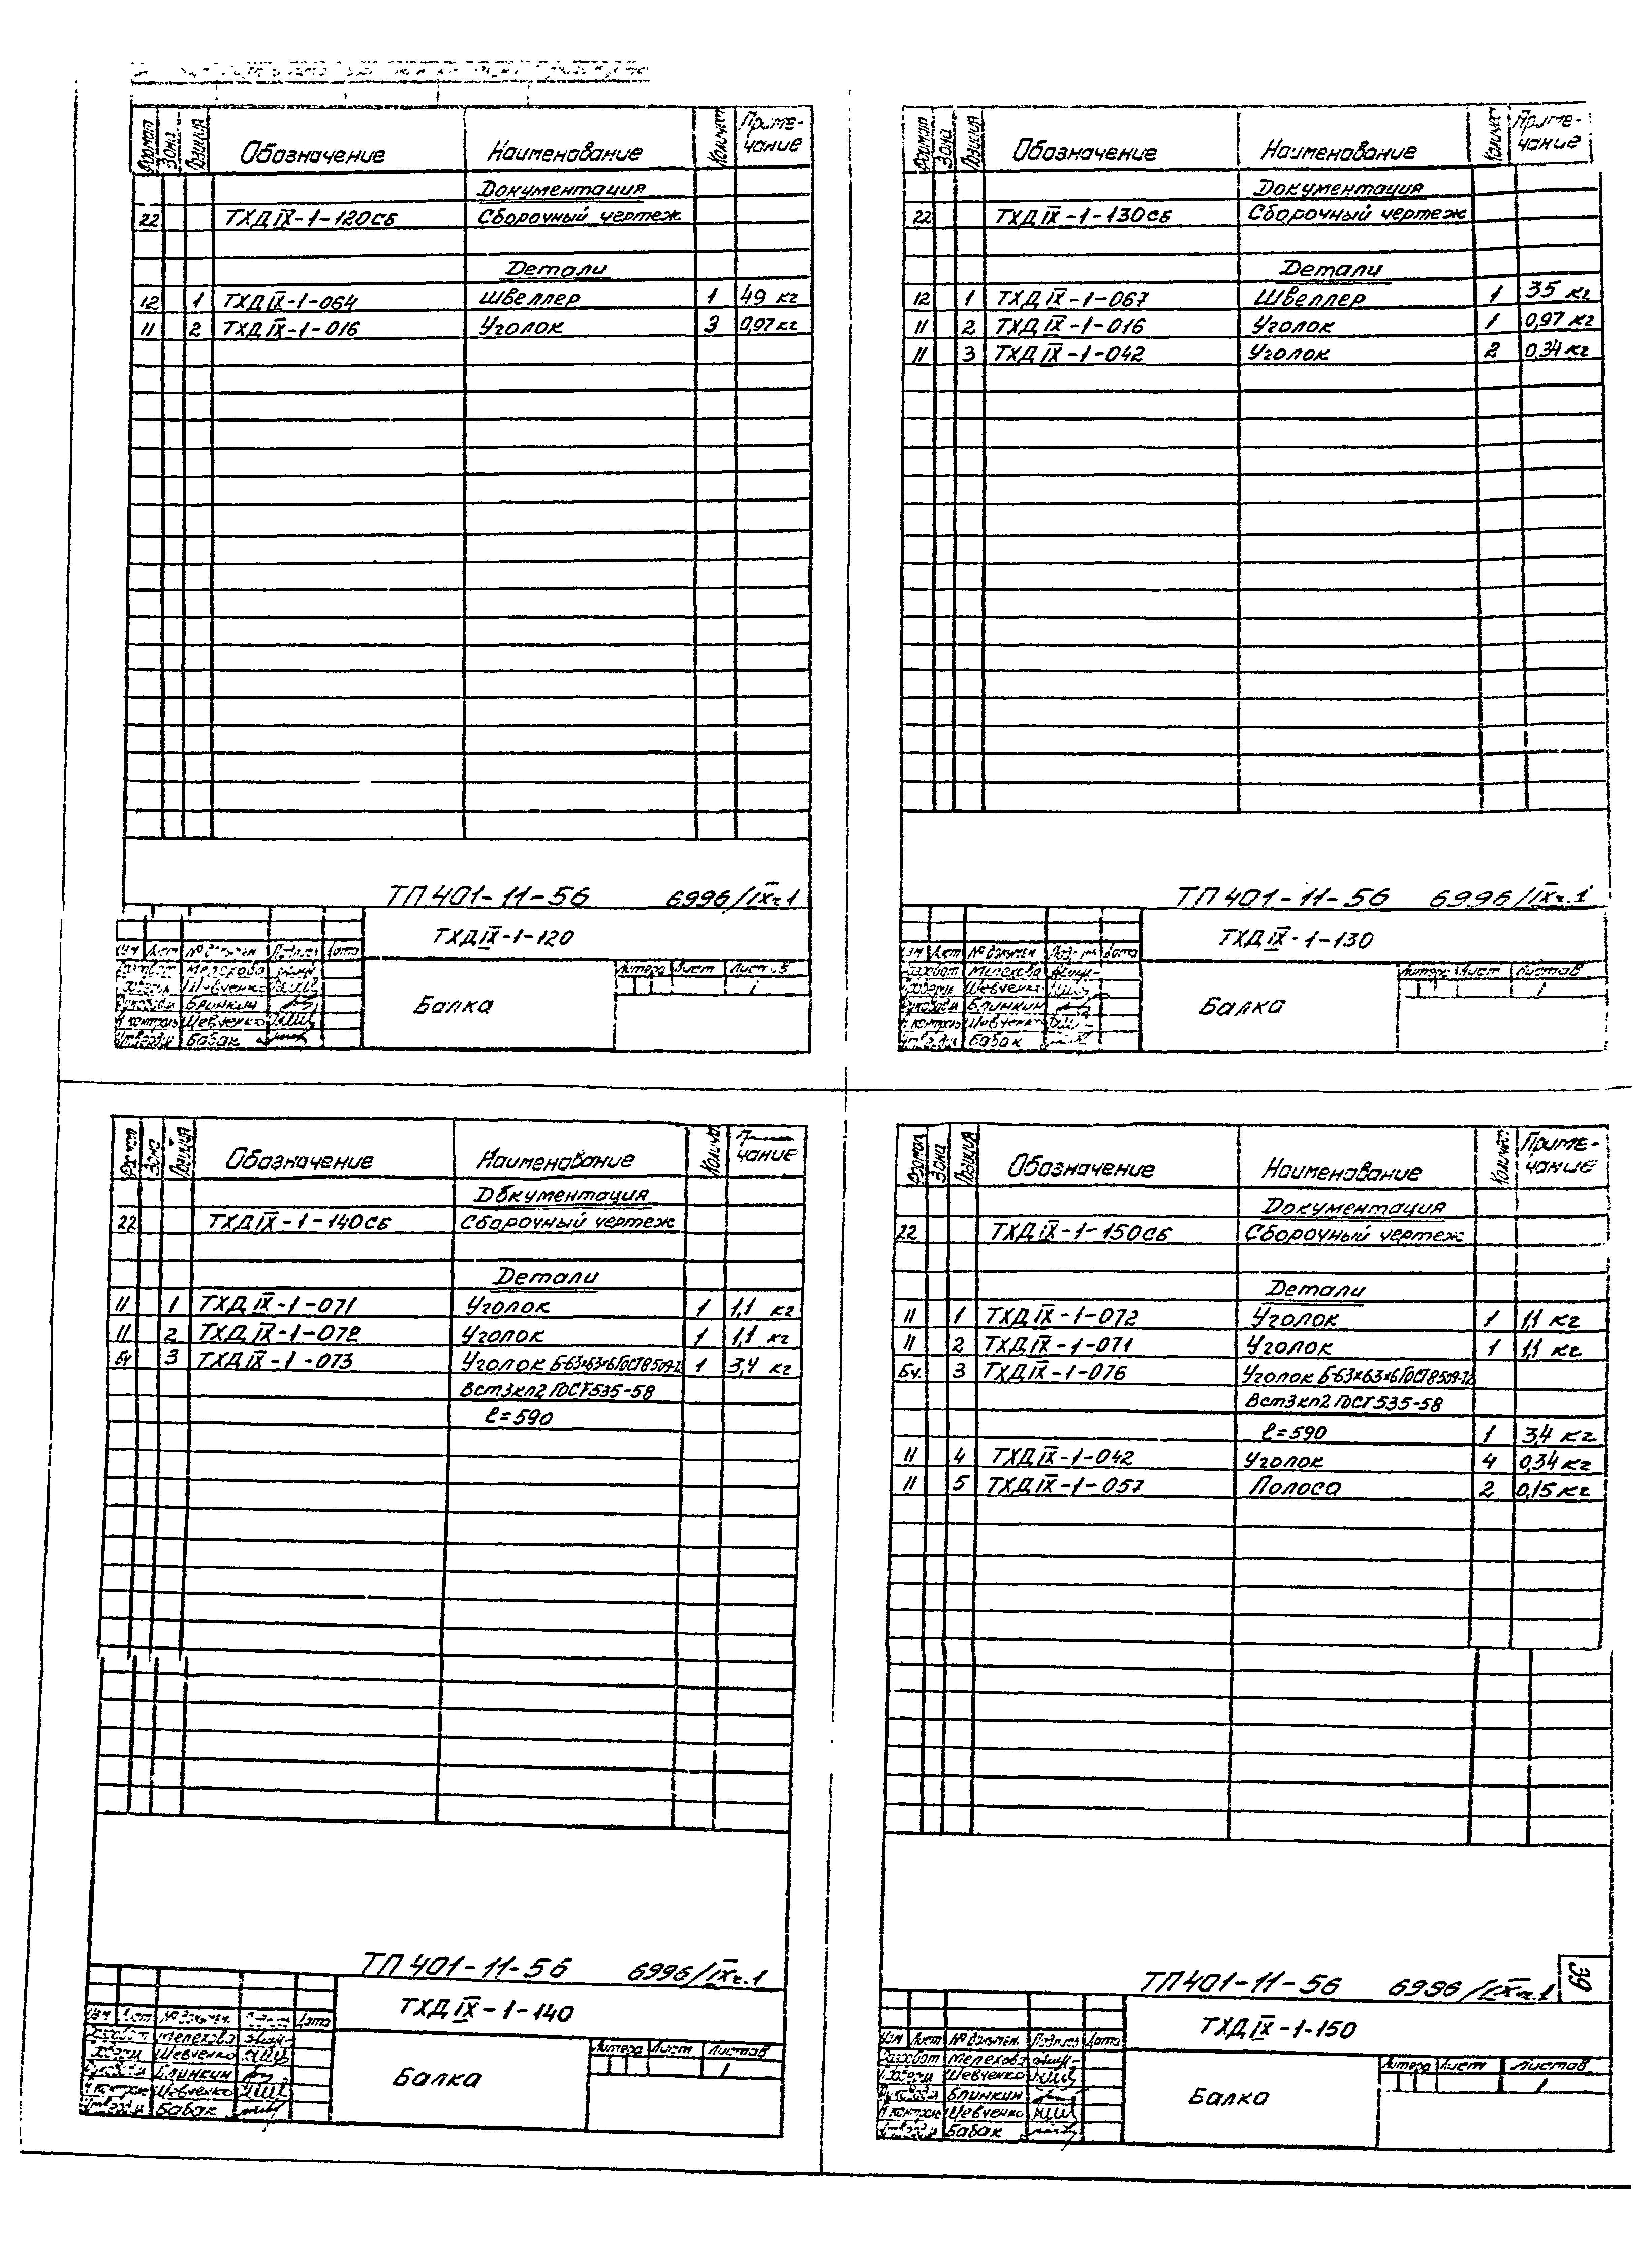 Формат Зона Позиция Обозначение Наименование Количест Приме-
чание
Документация
22 ТХД IX-1-120СБ Сборочный чертеж
Детали
12 1 ТХД IX-1-064 Швеллер 1 49 кг
11 2 ТХД IX-1-016 Уголок 3 0,97 кг
ТП 401-11-56 6996/IXч.1
ТХД IX-1-120
Изм Лист № докумен. Подпись Дата
Разработ Мелехова
Проверил Шевченко
Руководил Блинкин
Н контроль Шевченко
Утвердил Бабак
Балка
Литера Лист Листов
1
Формат Зона Позиция Обозначение Наименование Количест Приме-
чание
Документация
22 ТХД IX-1-130СБ Сборочный чертеж
Детали
12 1 ТХД IX-1-067 Швеллер 1 35 кг
11 2 ТХД IX-1-016 Уголок 1 0,97 кг
11 3 ТХД IX-1-042 Уголок 2 0,34 кг
ТП 401-11-56 6996/IXч.1
ТХД IX-1-130
Изм Лист № докумен. Подпись Дата
Разработ Мелехова
Проверил Шевченко
Руководил Блинкин
Н контроль Шевченко
Утвердил Бабак
Балка
Литера Лист Листов
1
Формат Зона Позиция Обозначение Наименование Количест
чание
Документация
22 ТХД IX-1-140СБ Сборочный чертеж
Детали
11 1 ТХД IX-1-071 Уголок 1 1,1 кг
11 2 ТХД IX-1-072 Уголок 1 1,1 кг
Бч 3 ТХД IX-1-073 Уголок Б-63×63×6 ГОСТ 8509-72 1 3,4 кг
Вст3кп2 ГОСТ 535-58
ℓ=590
ТП 401-11-56 6996/IXч.1
ТХД IX-1-140
Изм Лист № докумен. Подпись Дата
Разработ Мелехова
Проверил Шевченко
Руководил Блинкин
Н контроль Шевченко
Утвердил Бабак
Балка
Литера Лист Листов
1
Формат Зона Позиция Обозначение Наименование Количест Приме-
чание
Документация
22 ТХД IX-1-150СБ Сборочный чертеж
Детали
11 1 ТХД IX-1-072 Уголок 1 1,1 кг
11 2 ТХД IX-1-071 Уголок 1 1,1 кг
Бч. 3 ТХД IX-1-076 Уголок Б-63×63×6 ГОСТ 8509-72
Вст3кп2 ГОСТ 535-58
ℓ=590 1 3,4 кг
11 4 ТХД IX-1-042 Уголок 4 0,34 кг
11 5 ТХД IX-1-057 Полоса 2 0,15 кг
ТП 401-11-56 6996/IXч.1 39
ТХД IX-1-150
Изм Лист № докумен. Подпись Дата
Разработ Мелехова
Проверил Шевченко
Руководил Блинкин
Н контроль Шевченко
Утвердил Бабак
Балка
Литера Лист Листов
1